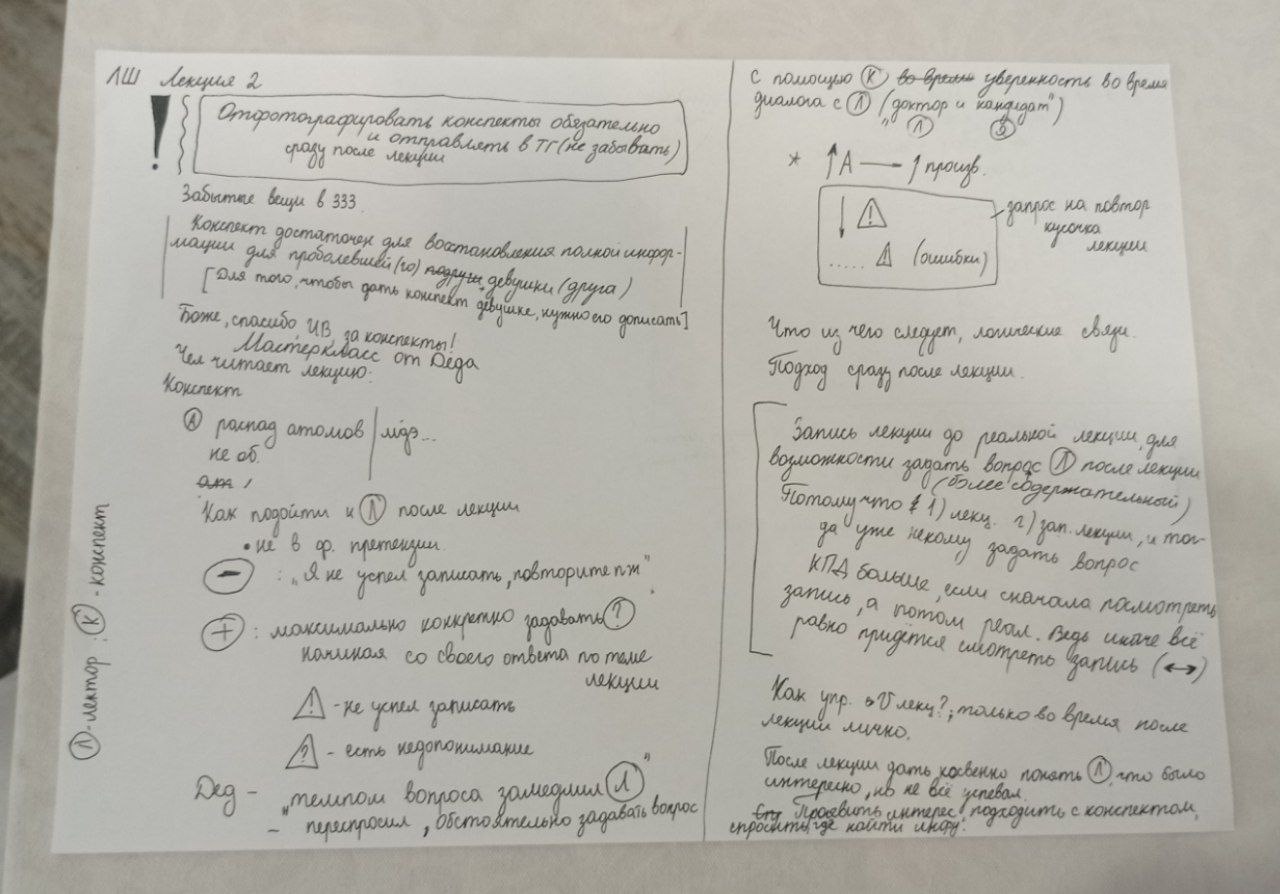 ЛШ Лекция 2
! Отфотографировать конспекты обязательно
и отправлять в ТГ (не забывать)
сразу после лекции
Забытые вещи в 333.
Конспект достаточен для восстановления полной инфор-
мации для проболевшей (го) подруги девушки (друга)
[Для того, чтобы дать конспект девушке, нужно его дописать]
Боже, спасибо, ИВ, за конспекты!
Мастеркласс от Деда
Чел читает лекцию:
Конспект
распад атомов | мдэ...
не об.
Как подойти к Л после лекции
• не в ф. претензии.
- : „Я не успел записать, повторите пж"
+ : максимально конкретно задавать ?
начиная со своего ответа по теме
лекции
! - не успел записать
? - есть недопонимание
Дед - „темпом вопроса замедлил Л"
- " - переспросил, обстоятельно задавать вопрос
Л - лектор ; К - конспект
с помощью К во время уверенность во время
диалога с Л („доктор и кандидат")
Л
* ↑ А — ↑ произв.
↓ !
..... ! (ошибки)
запрос на повтор
кусочка
лекции
Что из чего следует, логические связи.
Подход сразу после лекции.
Запись лекции до реальной лекции, для
возможности задать вопрос Л после лекции
(более содержательный)
Потому что 1) лекц. 2) зап. лекции, и тог-
да уже некому задать вопрос
КПД больше, если сначала посмотреть
запись, а потом реал. Ведь иначе всё
равно придётся смотреть запись (↔)
Как упр. V лекц?; только во время после
лекции лично.
После лекции дать косвенно понять Л, что было
интересно, но не всё успевал.
Проявить интерес, подходить с конспектом,
спросить, где найти инфу.